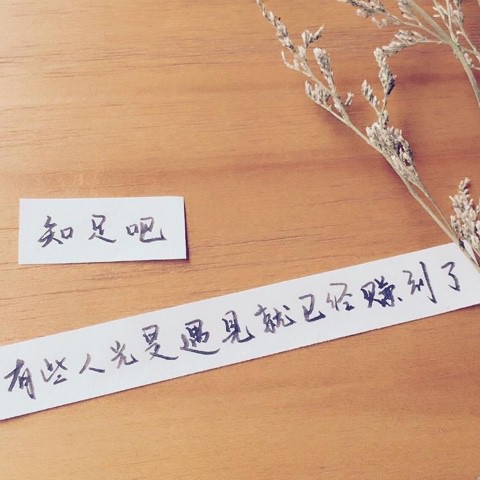 知足吧
有些人光是遇见就已经赚到了